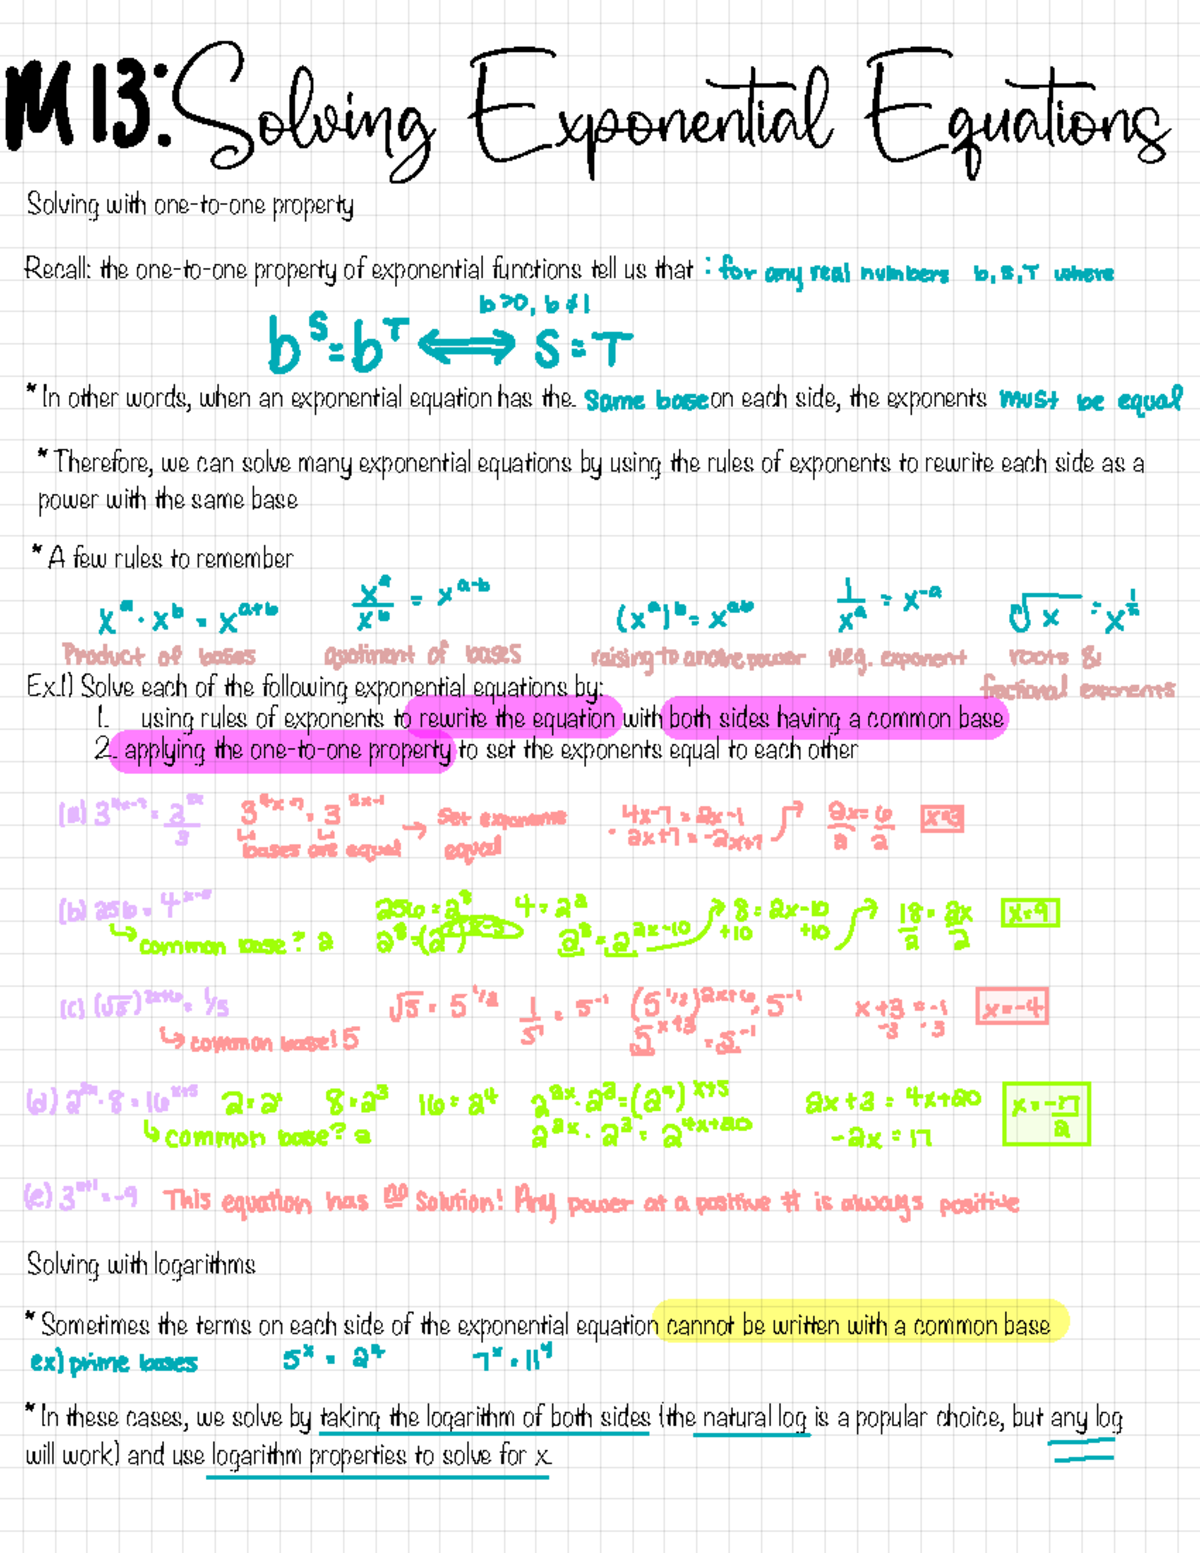 M13: Solving Exponential Equations
Solving with one-to-one property
Recall: the one-to-one property of exponential functions tell us that : for any real numbers b, s, T where
b>0, b≠1
b^S = b^T ⟺ S = T
* In other words, when an exponential equation has the. Same base on each side, the exponents must be equal
* Therefore, we can solve many exponential equations by using the rules of exponents to rewrite each side as a
power with the same base
* A few rules to remember
x^a · x^b = x^(a+b) x^a/x^b = x^(a-b) (x^a)^b = x^(ab) 1/x^a = x^-a ⁿ√x = x^(1/n)
Product of bases quotinent of bases raising to another power Neg. exponent roots &
fractional exponents
Ex.1) Solve each of the following exponential equations by:
1. using rules of exponents to rewrite the equation with both sides having a common base
2. applying the one-to-one property to set the exponents equal to each other
(a) 3^(4x-7) = 3^(2x)/3 3^(4x-7) = 3^(2x-1) → Set exponents equal 4x-7 = 2x-1 2x = 6 x=3
bases are equal -2x+7 = -2x+7 2 2
(b) 256 = 4^(x-5) 256 = 2^8 4 = 2^2 8 = 2x-10 18 = 2x x=9
↳ common base? 2 2^8 = (2^2) 2^8 = 2^(2x-10) +10 +10 2 2
(c) (√5)^(2x+6) = 1/5 √5 = 5^(1/2) 1/5 = 5^-1 (5^(1/2))^(2x+6) = 5^-1 x+3 = -1 x=-4
↳ common base! 5 5^(x+3) = 5^-1 -3 -3
(d) 2^(2x) · 8 = 16^(x+5) 2 = 2^1 8 = 2^3 16 = 2^4 2^(2x) · 2^3 = (2^4)^(x+5) 2x+3 = 4x+20 x = -17/2
↳ common base? 2 2^(2x) · 2^3 = 2^(4x+20) -2x = 17
(e) 3^(x+1) = -9 This equation has no solution! Any power at a positive # is always positive
Solving with logarithms
* Sometimes the terms on each side of the exponential equation cannot be written with a common base
ex) prime bases 5^x = 2^4 7^x = 11^4
* In these cases, we solve by taking the logarithm of both sides (the natural log is a popular choice, but any log
will work) and use logarithm properties to solve for x.